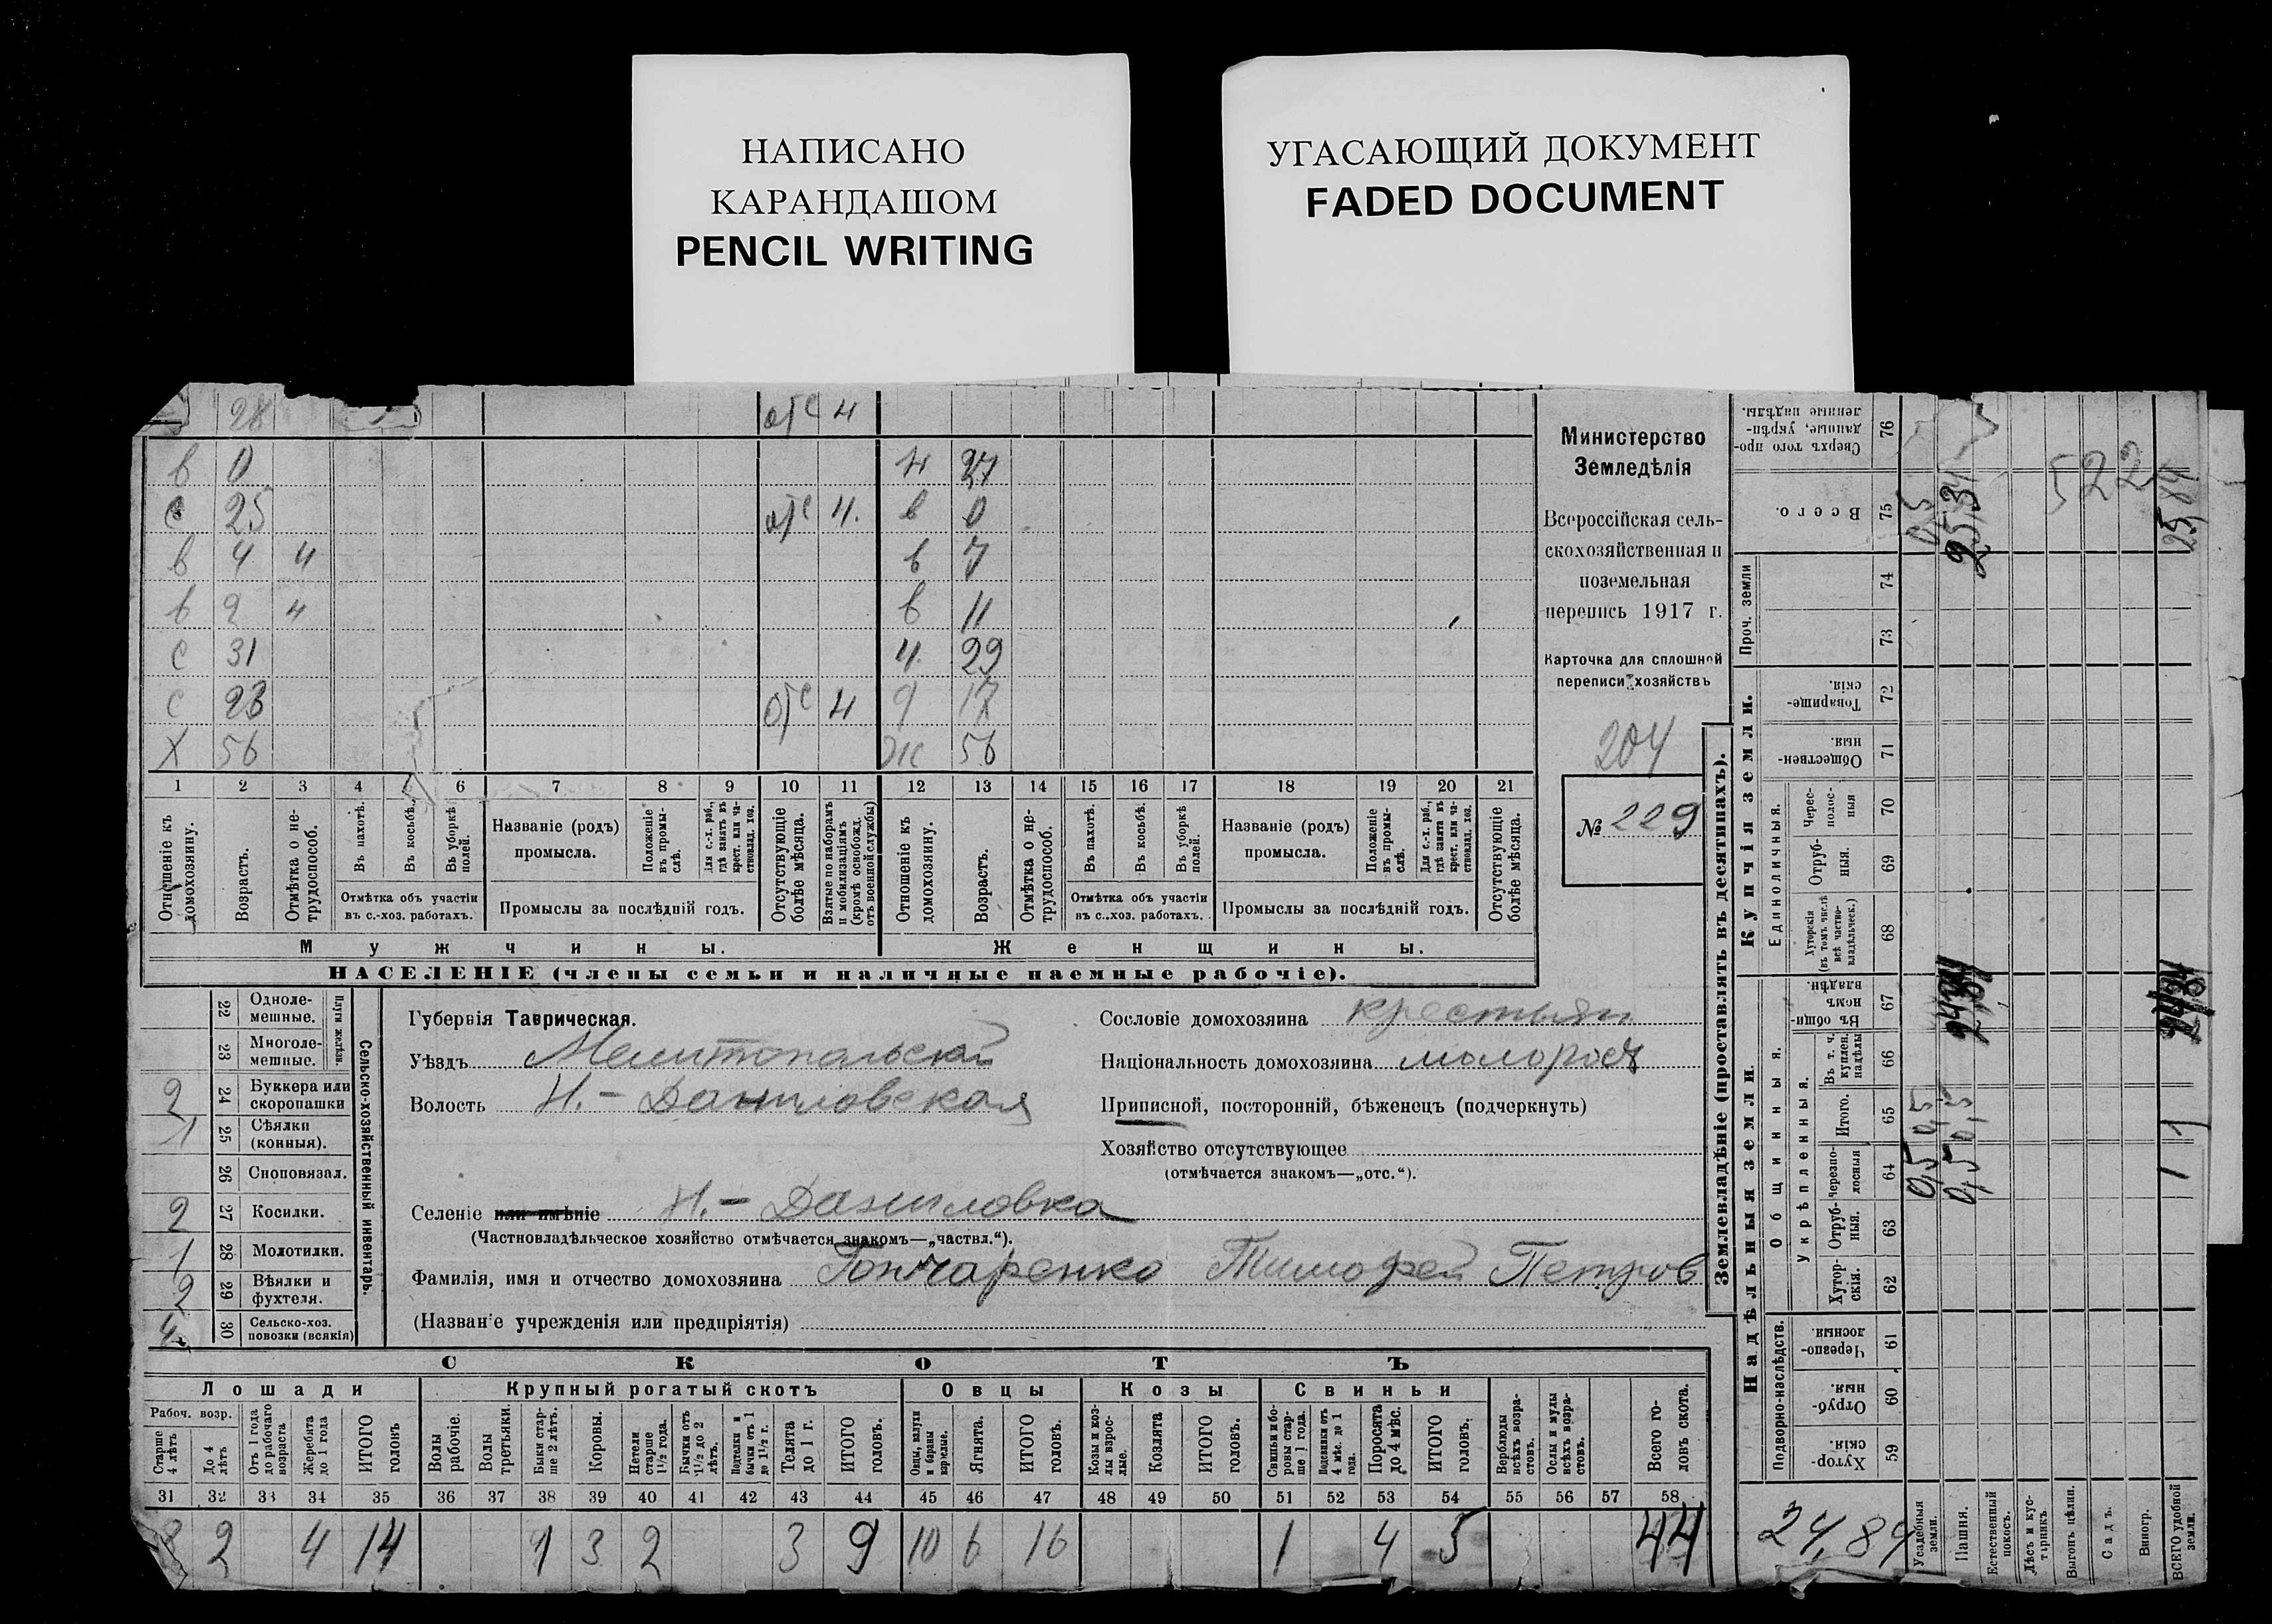 НАПИСАНО
КАРАНДАШОМ
PENCIL WRITING
УГАСАЮЩИЙ ДОКУМЕНТ
FADED DOCUMENT
28 отс 4
в 0 н 27
с 25 отс 4. в 0
в 4 ч в 7
в 2 ч в 11
с 31 ч. 29
с 23 отс 4 д 17
Х 56 Ж 56
1 2 3 4 6 7 8 9 10 11 12 13 14 15 16 17 18 19 20 21
Отношеніе къ домохозяину.
Возрастъ.
Отмѣтка о нетрудоспособ.
Въ пахотѣ.
Въ косьбѣ.
Въ уборкѣ полей.
Отмѣтка объ участіи въ с.-хоз. работахъ.
Названіе (родъ) промысла.
Положеніе въ промыслѣ.
Для с.-х. раб., гдѣ занятъ въ крест. или частновлад. хоз.
Промыслы за послѣдній годъ.
Отсутствующіе болѣе мѣсяца.
Взятые по наборамъ и мобилизаціямъ (кромѣ освобожд. отъ военной службы)
Отношеніе къ домохозяину.
Возрастъ.
Отмѣтка о нетрудоспособ.
Въ пахотѣ.
Въ косьбѣ.
Въ уборкѣ полей.
Отмѣтка объ участіи въ с..хоз. работахъ.
Названіе (родъ) промысла.
Положеніе въ промыслѣ.
Для с.-х. раб., гдѣ занята въ крест. или частновлад. хоз.
Промыслы за послѣдній годъ.
Отсутствующіе болѣе мѣсяца.
Мужчины. Женщины.
НАСЕЛЕНІЕ (члены семьи и наличные наемные рабочіе).
Министерство
Земледѣлія
Всероссійская сель-
скохозяйственная и
поземельная
перепись 1917 г.
Карточка для сплошной
переписи хозяйствъ
204
№ 229
22 Одноле-мешные.
23 Многоле-мешные.
Плуги желѣзн.
2 24 Буккера или скоропашки
1 25 Сѣялки (конныя).
26 Сноповязал.
2 27 Косилки.
1 28 Молотилки.
2 29 Вѣялки и фухтеля.
4 30 Сельско-хоз. повозки (всякія)
Сельско-хозяйственный инвентарь.
Губернія Таврическая.
Уѣздъ Мелитопольскій
Волость Н.-Даниловская
Селеніе или имѣніе Н.-Даниловка
(Частновладѣльческое хозяйство отмѣчается знакомъ—„частвл.“).
Фамилія, имя и отчество домохозяина Гончаренко Тимофей Петров
(Названіе учрежденія или предпріятія)
Сословіе домохозяина крестьян
Національность домохозяина малоросс
Приписной, посторонній, бѣженецъ (подчеркнуть)
Хозяйство отсутствующее
(отмѣчается знакомъ—„отс.“).
СКОТЪ
Лошади Крупный рогатый скотъ Овцы Козы Свиньи
Рабоч. возр.
Старше 4 лѣтъ
До 4 лѣтъ
Отъ 1 года до рабочаго возраста
Жеребята до 1 года
ИТОГО головъ
Волы рабочіе.
Волы третьяки.
Быки старше 2 лѣтъ.
Коровы.
Нетели старше 1 1/2 года.
Бычки отъ 1 1/2 до 2 лѣтъ.
Подтелки и бычки отъ 1 до 1 1/2 г.
Телята до 1 г.
ИТОГО головъ.
Овцы, валухи и бараны взрослые.
Ягнята.
ИТОГО головъ.
Козы и козлы взрослые.
Козлята
ИТОГО головъ.
Свиньи и боровы старше 1 года.
Подсвинки отъ 4 мѣс. до 1 года.
Поросята до 4 мѣс.
ИТОГО головъ.
Верблюды всѣхъ возрастовъ.
Ослы и мулы всѣхъ возрастовъ.
Всего головъ скота.
31 32 33 34 35 36 37 38 39 40 41 42 43 44 45 46 47 48 49 50 51 52 53 54 55 56 57 58
8 2 4 14 1 3 2 3 9 10 6 16 1 4 5 44
Землевладѣніе (проставлять въ десятинахъ).
Купчія земли.
Надѣльныя земли.
Сверхъ того проданные, укрѣпленные надѣлы. 76
Всего. 75
Проч. земли 74 73
Товарищескія. 72
Общественныя. 71
Единоличныя.
Чересполосныя 70
Отрубныя. 69
Хуторскія (въ томъ числѣ всѣ частновладѣльческ.) 68
Общинныя.
Въ общинномъ владѣн. 67
Укрѣпленныя.
Въ т. ч. куплен. надѣлы 66
Итого. 65
Черезполосныя 64
Отрубныя. 63
Хуторскія. 62
Подворно-наслѣдств.
Черезполосныя 61
Отрубныя. 60
Хуторскія. 59
Усадебныя земли.
Пашня.
Естественный покосъ.
Лѣсъ и кустарникъ.
Выгонъ цѣлин.
Садъ.
Виногр.
ВСЕГО удобной земли.
0,5 25,34 25,84
522
0,5 0,5
0,5 0,5
1 1
24,84